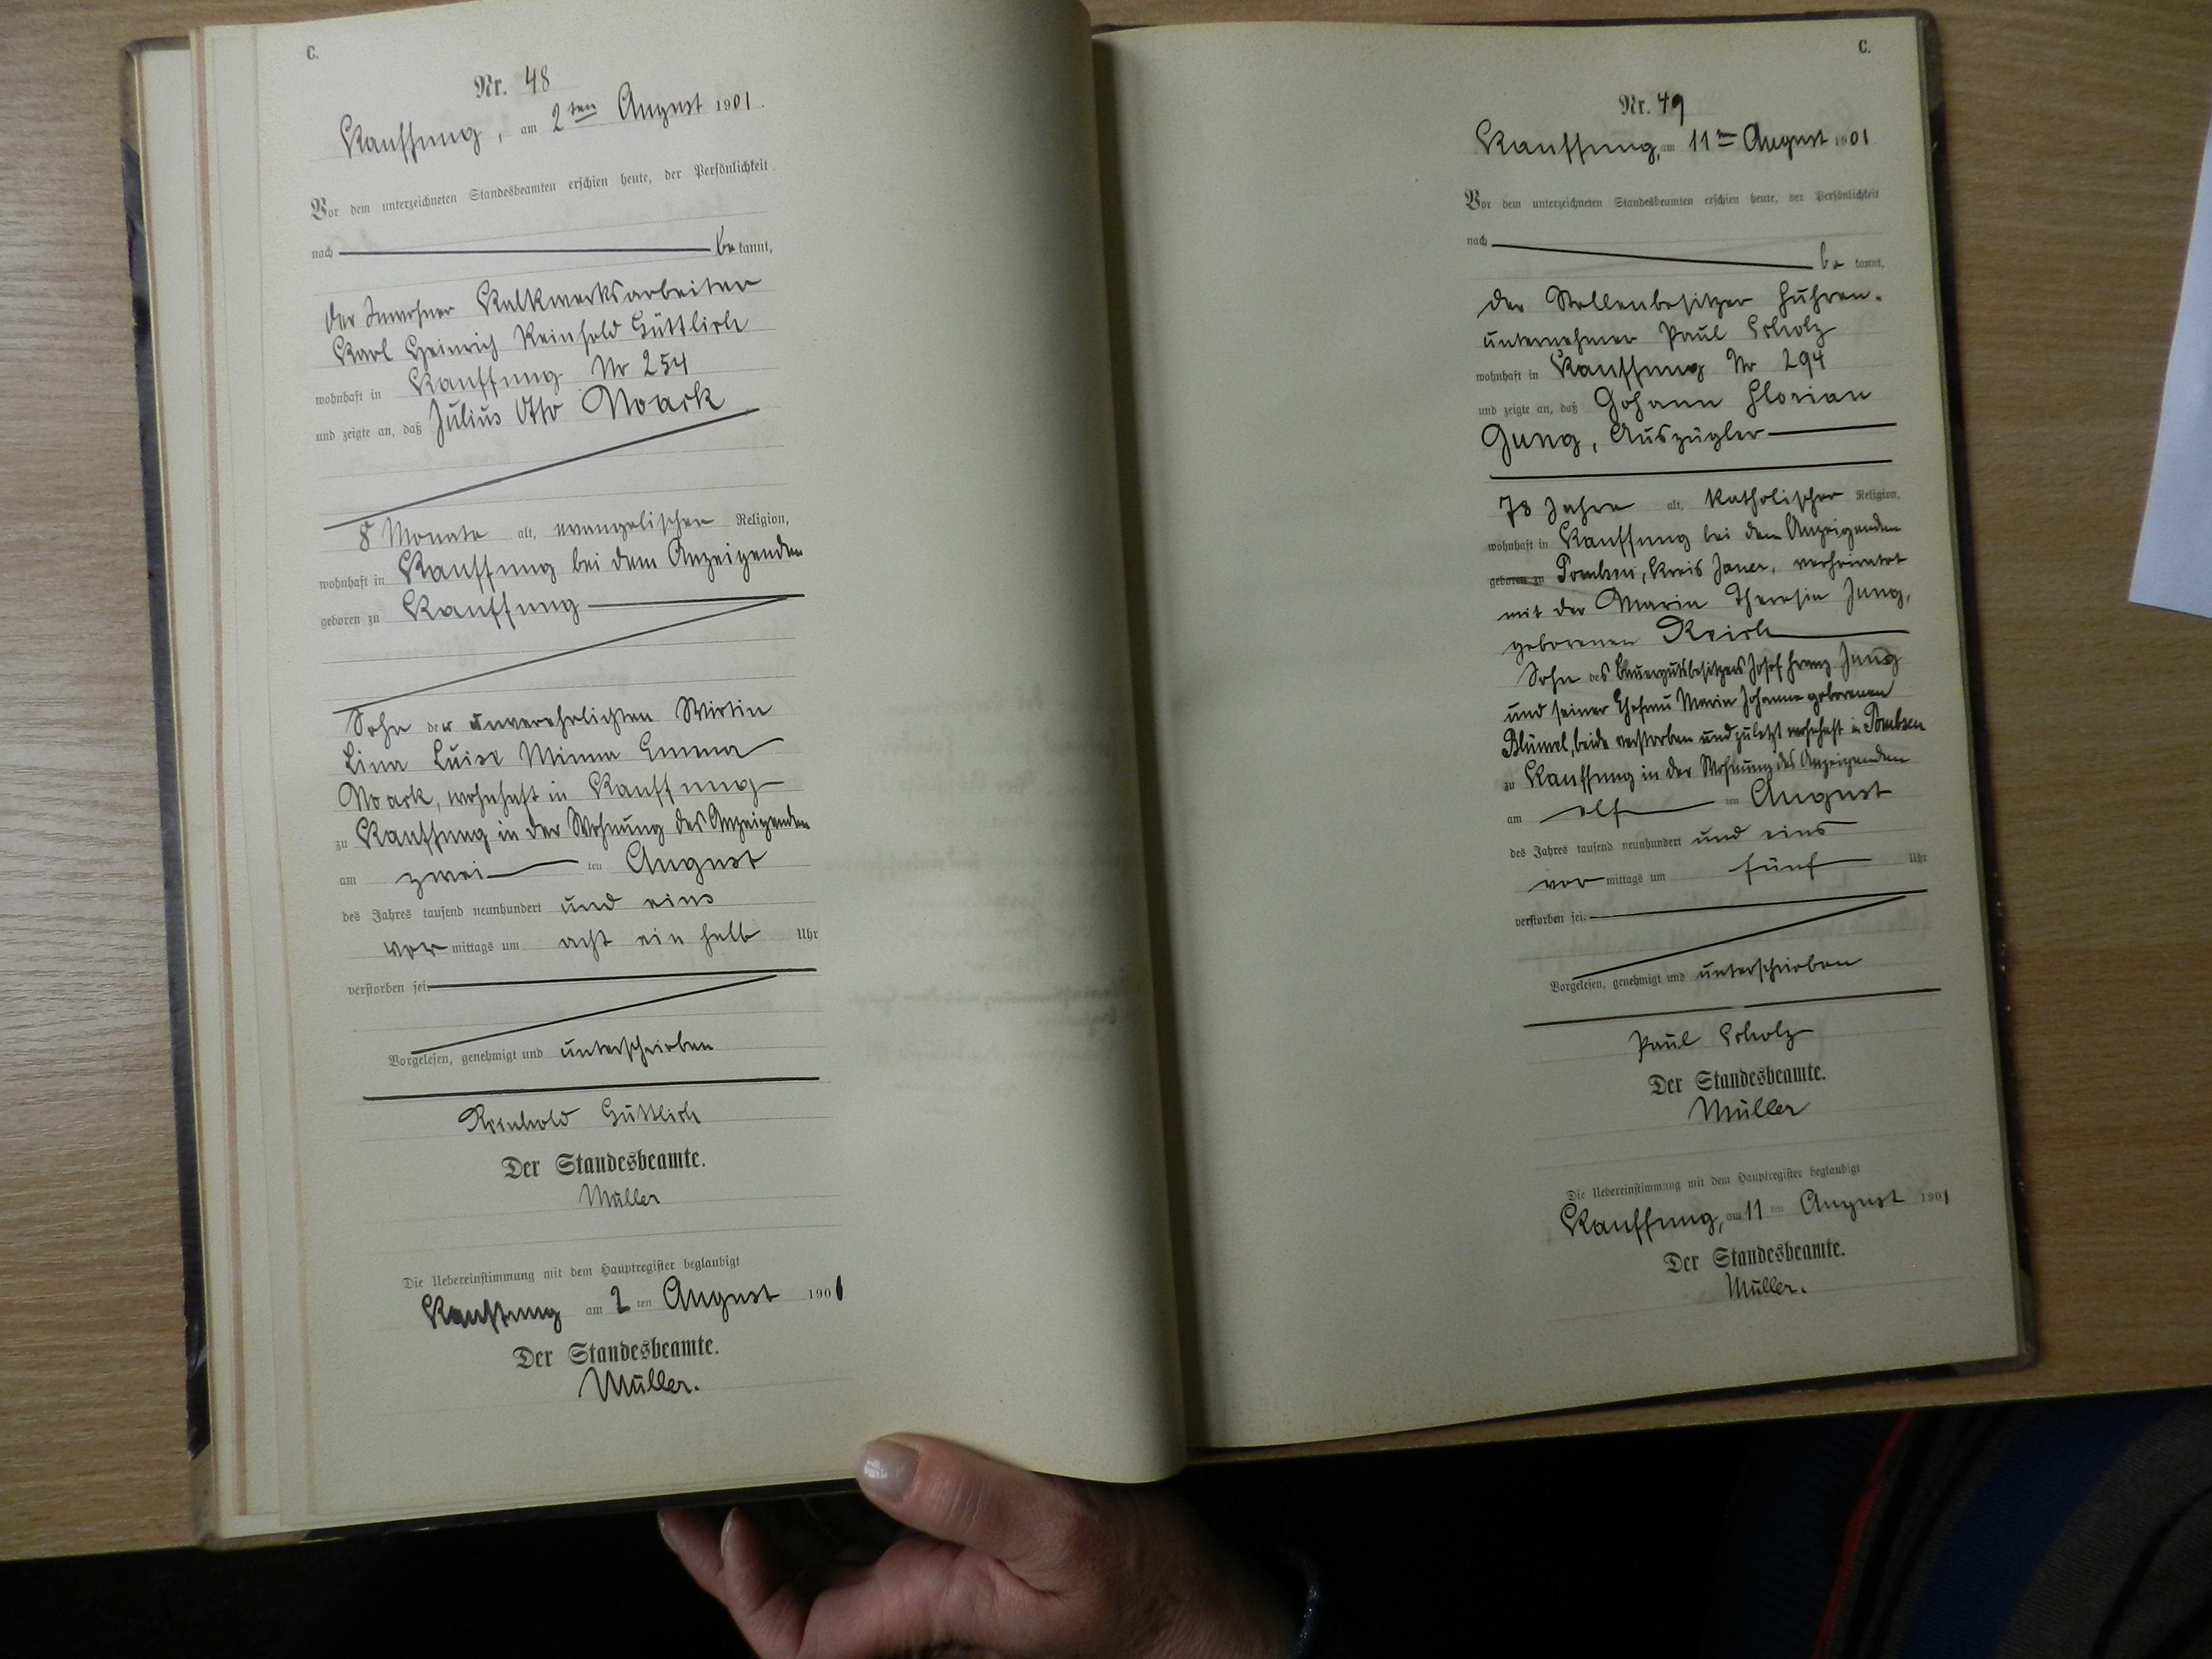 C.
Nr. 48
Kauffung, am 2ten August 1901.
Vor dem unterzeichneten Standesbeamten erschien heute, der Persönlichkeit
nach be kannt,
der Inwohner Kalkwerksarbeiter
Karl Heinrich Reinhold Güttlich
wohnhaft in Kauffung Nr 254
und zeigte an, daß Julius Otto Noack
8 Monate alt, evangelischer Religion,
wohnhaft in Kauffung bei dem Anzeigenden
geboren zu Kauffung
Sohn der unverehelichten Wirtin
Lina Luise Minna Emma
Noack, wohnhaft in Kauffung
zu Kauffung in der Wohnung des Anzeigenden
am zwei ten August
des Jahres tausend neunhundert und eins
vor mittags um acht ein halb Uhr
verstorben sei.
Vorgelesen, genehmigt und unterschrieben
Reinhold Güttlich
Der Standesbeamte.
Müller
Die Uebereinstimmung mit dem Hauptregister beglaubigt
Kauffung am 2 ten August 1901
Der Standesbeamte.
Müller.
C.
Nr. 49
Kauffung, am 11ten August 1901
Vor dem unterzeichneten Standesbeamten erschien heute, der Persönlichkeit
nach be kannt,
der Stellenbesitzer Fuhren-
unternehmer Paul Scholz
wohnhaft in Kauffung Nr 294
und zeigte an, daß Johann Florian
Jung, Auszügler
78 Jahre alt, katholischer Religion,
wohnhaft in Kauffung bei dem Anzeigenden
geboren zu Pombsen, Kreis Jauer, verheiratet
mit der Maria Theresia Jung,
geborenen Reich
Sohn des Bauergutsbesitzers Josef Franz Jung
und seiner Ehefrau Maria Johanna geborenen
Blümel, beide verstorben und zuletzt wohnhaft in Pombsen
zu Kauffung in der Wohnung des Anzeigenden
am elf ten August
des Jahres tausend neunhundert und eins
vor mittags um fünf Uhr
verstorben sei.
Vorgelesen, genehmigt und unterschrieben
Paul Scholz
Der Standesbeamte.
Müller
Die Uebereinstimmung mit dem Hauptregister beglaubigt
Kauffung, am 11 ten August 1901
Der Standesbeamte.
Müller.